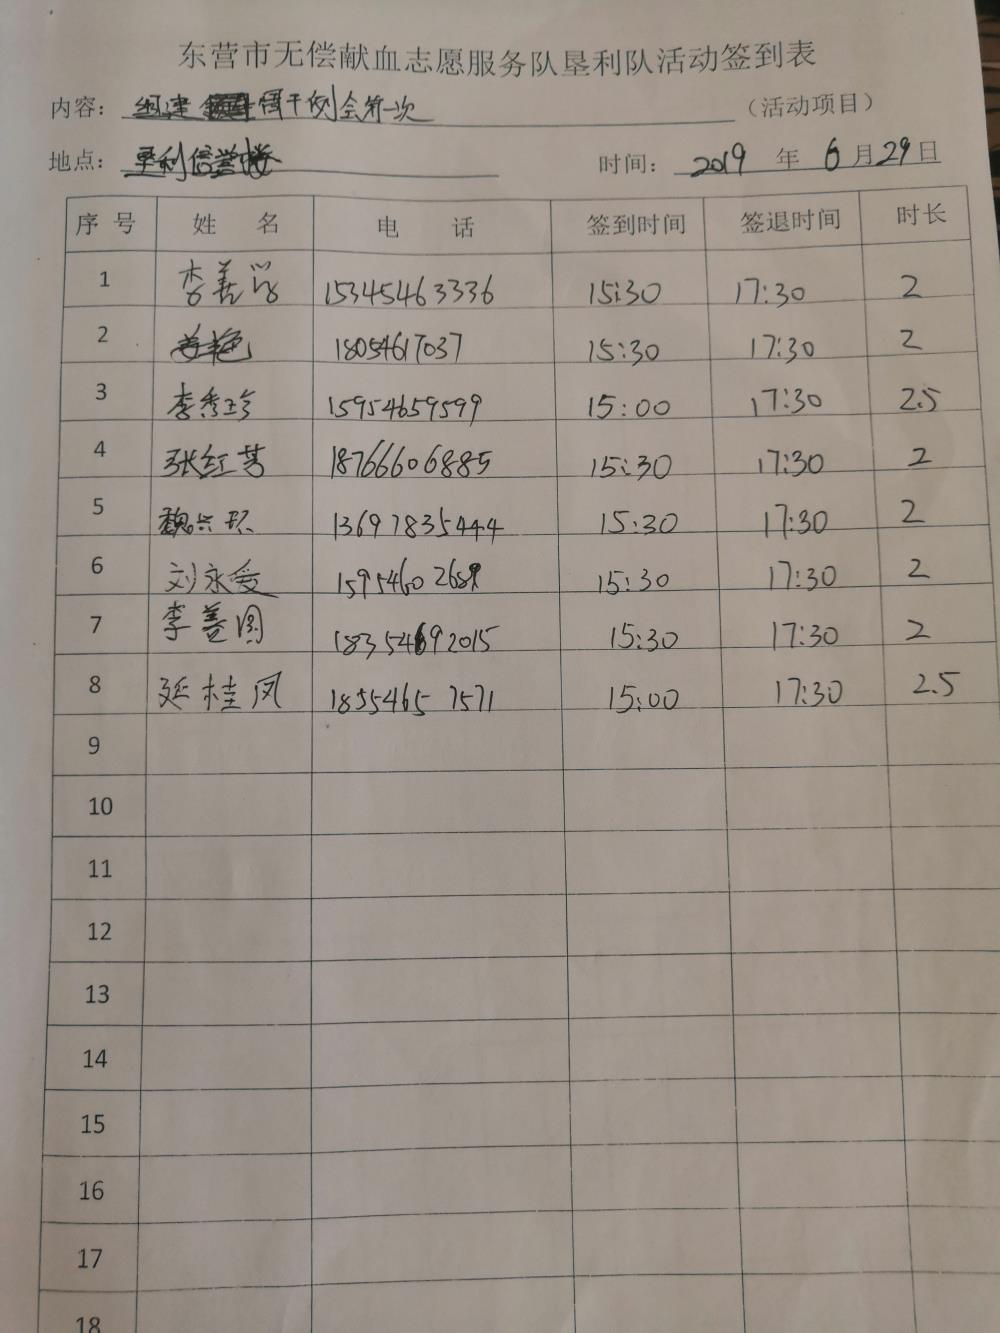 东营市无偿献血志愿服务队垦利队活动签到表
内容： 组建 骨干例会第一次 （活动项目）
地点： 垦利信誉楼 时间： 2019 年 6 月 29 日
序 号 姓 名 电 话 签到时间 签退时间 时长
1 李善 15345463336 15:30 17:30 2
2 18054617037 15:30 17:30 2
3 李秀珍 15954659599 15:00 17:30 2.5
4 张红芳 18766606885 15:30 17:30 2
5 魏兴 13697835444 15:30 17:30 2
6 刘永爱 15:30 17:30 2
7 李善圆 18354692015 15:30 17:30 2
8 延桂凤 18554657571 15:00 17:30 2.5
9
10
11
12
13
14
15
16
17
18